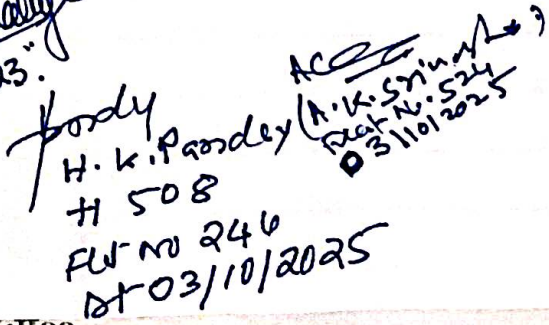 3."
H. K. Pandey
H 508
Flt No 246
Dt 03/10/2025
(A. K. Srivastava)
Flat No. 524
03/10/2025